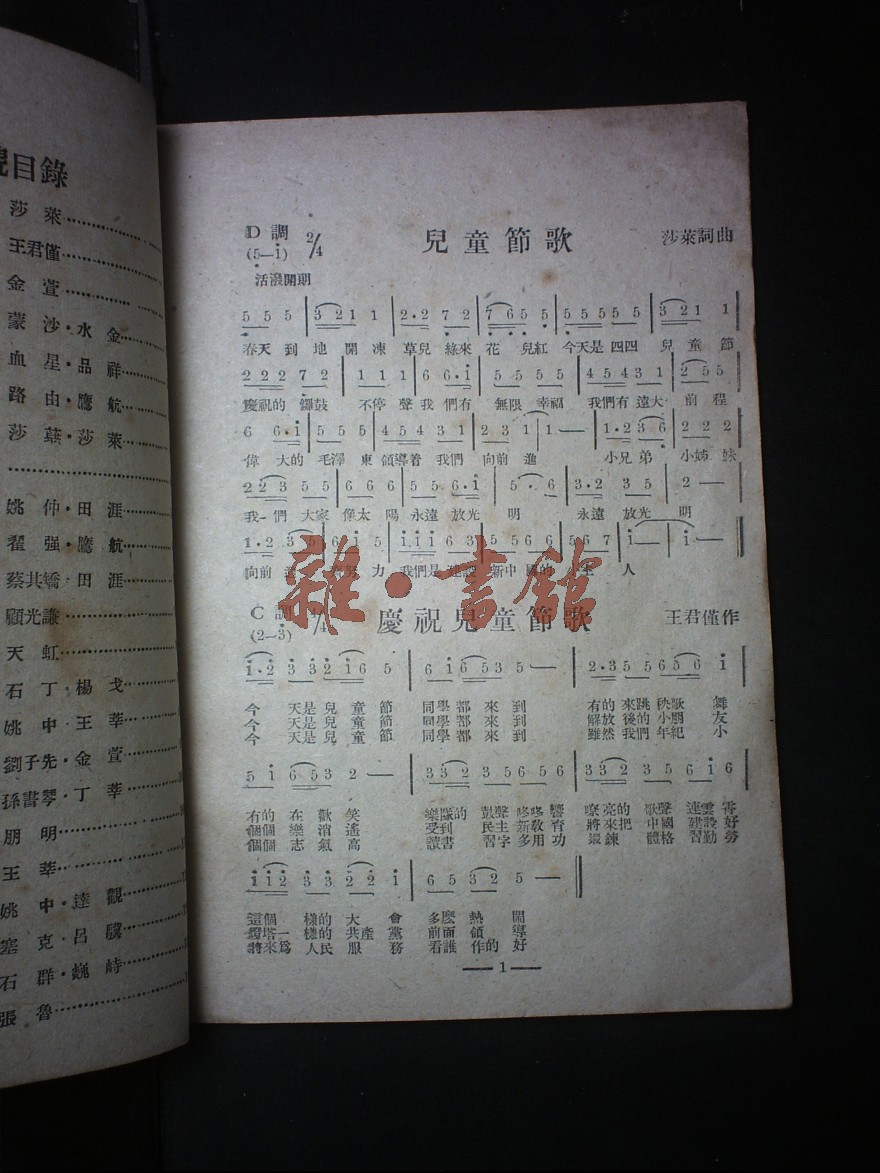 號目錄
莎萊
王君僅
金萱
蒙沙·水金
血星·品祥
路由·鷹航
莎蕻·莎萊
姚仲·田涯
翟強·鷹航
蔡其矯·田涯
顧光謙
天虹
石丁·楊戈
姚中·王莘
劉子先·金萱
孫書琴·丁莘
朋明
王莘
姚中·達觀
塞克·呂驥
石群·巍峙
張魯
D調 2/4
(5—i)
兒童節歌
莎萊詞曲
活潑開朗
5 5 5 | 3 2 1 1 1 | 2·2 7 2 | 7 6 5 5 | 5 5 5 5 5 | 3 2 1 1
春天到地開凍草兒綠來花兒紅今天是四四兒童節
2 2 2 7 2 | 1 1 1 | 6 6·i | 5 5 5 5 | 4 5 4 3 1 | 2 5 5
慶祝的鑼鼓不停聲我們有無限幸福我們有遠大前程
6 6·i | 5 5 5 | 4 5 4 3 1 | 2 3 1 | 1 — | 1·2 3 6 | 2 2 2
偉大的毛澤東領導着我們向前進小兄弟小姊妹
2 2 3 5 5 | 6 6 6 | 5 5 6·i | 5·6 | 3·2 3 5 | 2 —
我們大家像太陽永遠放光明永遠放光明
向前進 力我們是建設新中國的主人
雜·書館
C調 4/4
(2—3)
慶祝兒童節歌
王君僅作
i·2 3 3 2 i 6 5 | 6 i 6 5 3 5 — | 2·3 5 5 6 5 6 i
今天是兒童節同學都來到有的來跳秧歌舞
今天是兒童節同學都來到解放後的小朋友
今天是兒童節同學都來到雖然我們年紀小
5 i 6 5 3 2 — | 3 3 2 3 5 6 5 6 | 3 3 2 3 5 6 i 6
有的在歡笑樂隊的鼓聲咚咚響嘹亮的歌聲連雲霄
個個樂逍遙受到民主新教育將來把中國建設好
個個志氣高讀書習字多用功鍛鍊體格習勤勞
i i 2 3 3 2 2 i | 6 5 3 2 5 —
這個樣的大會多麼熱鬧
燈塔一樣的共產黨前面領導
將來為人民服務看誰作的好
— 1 —